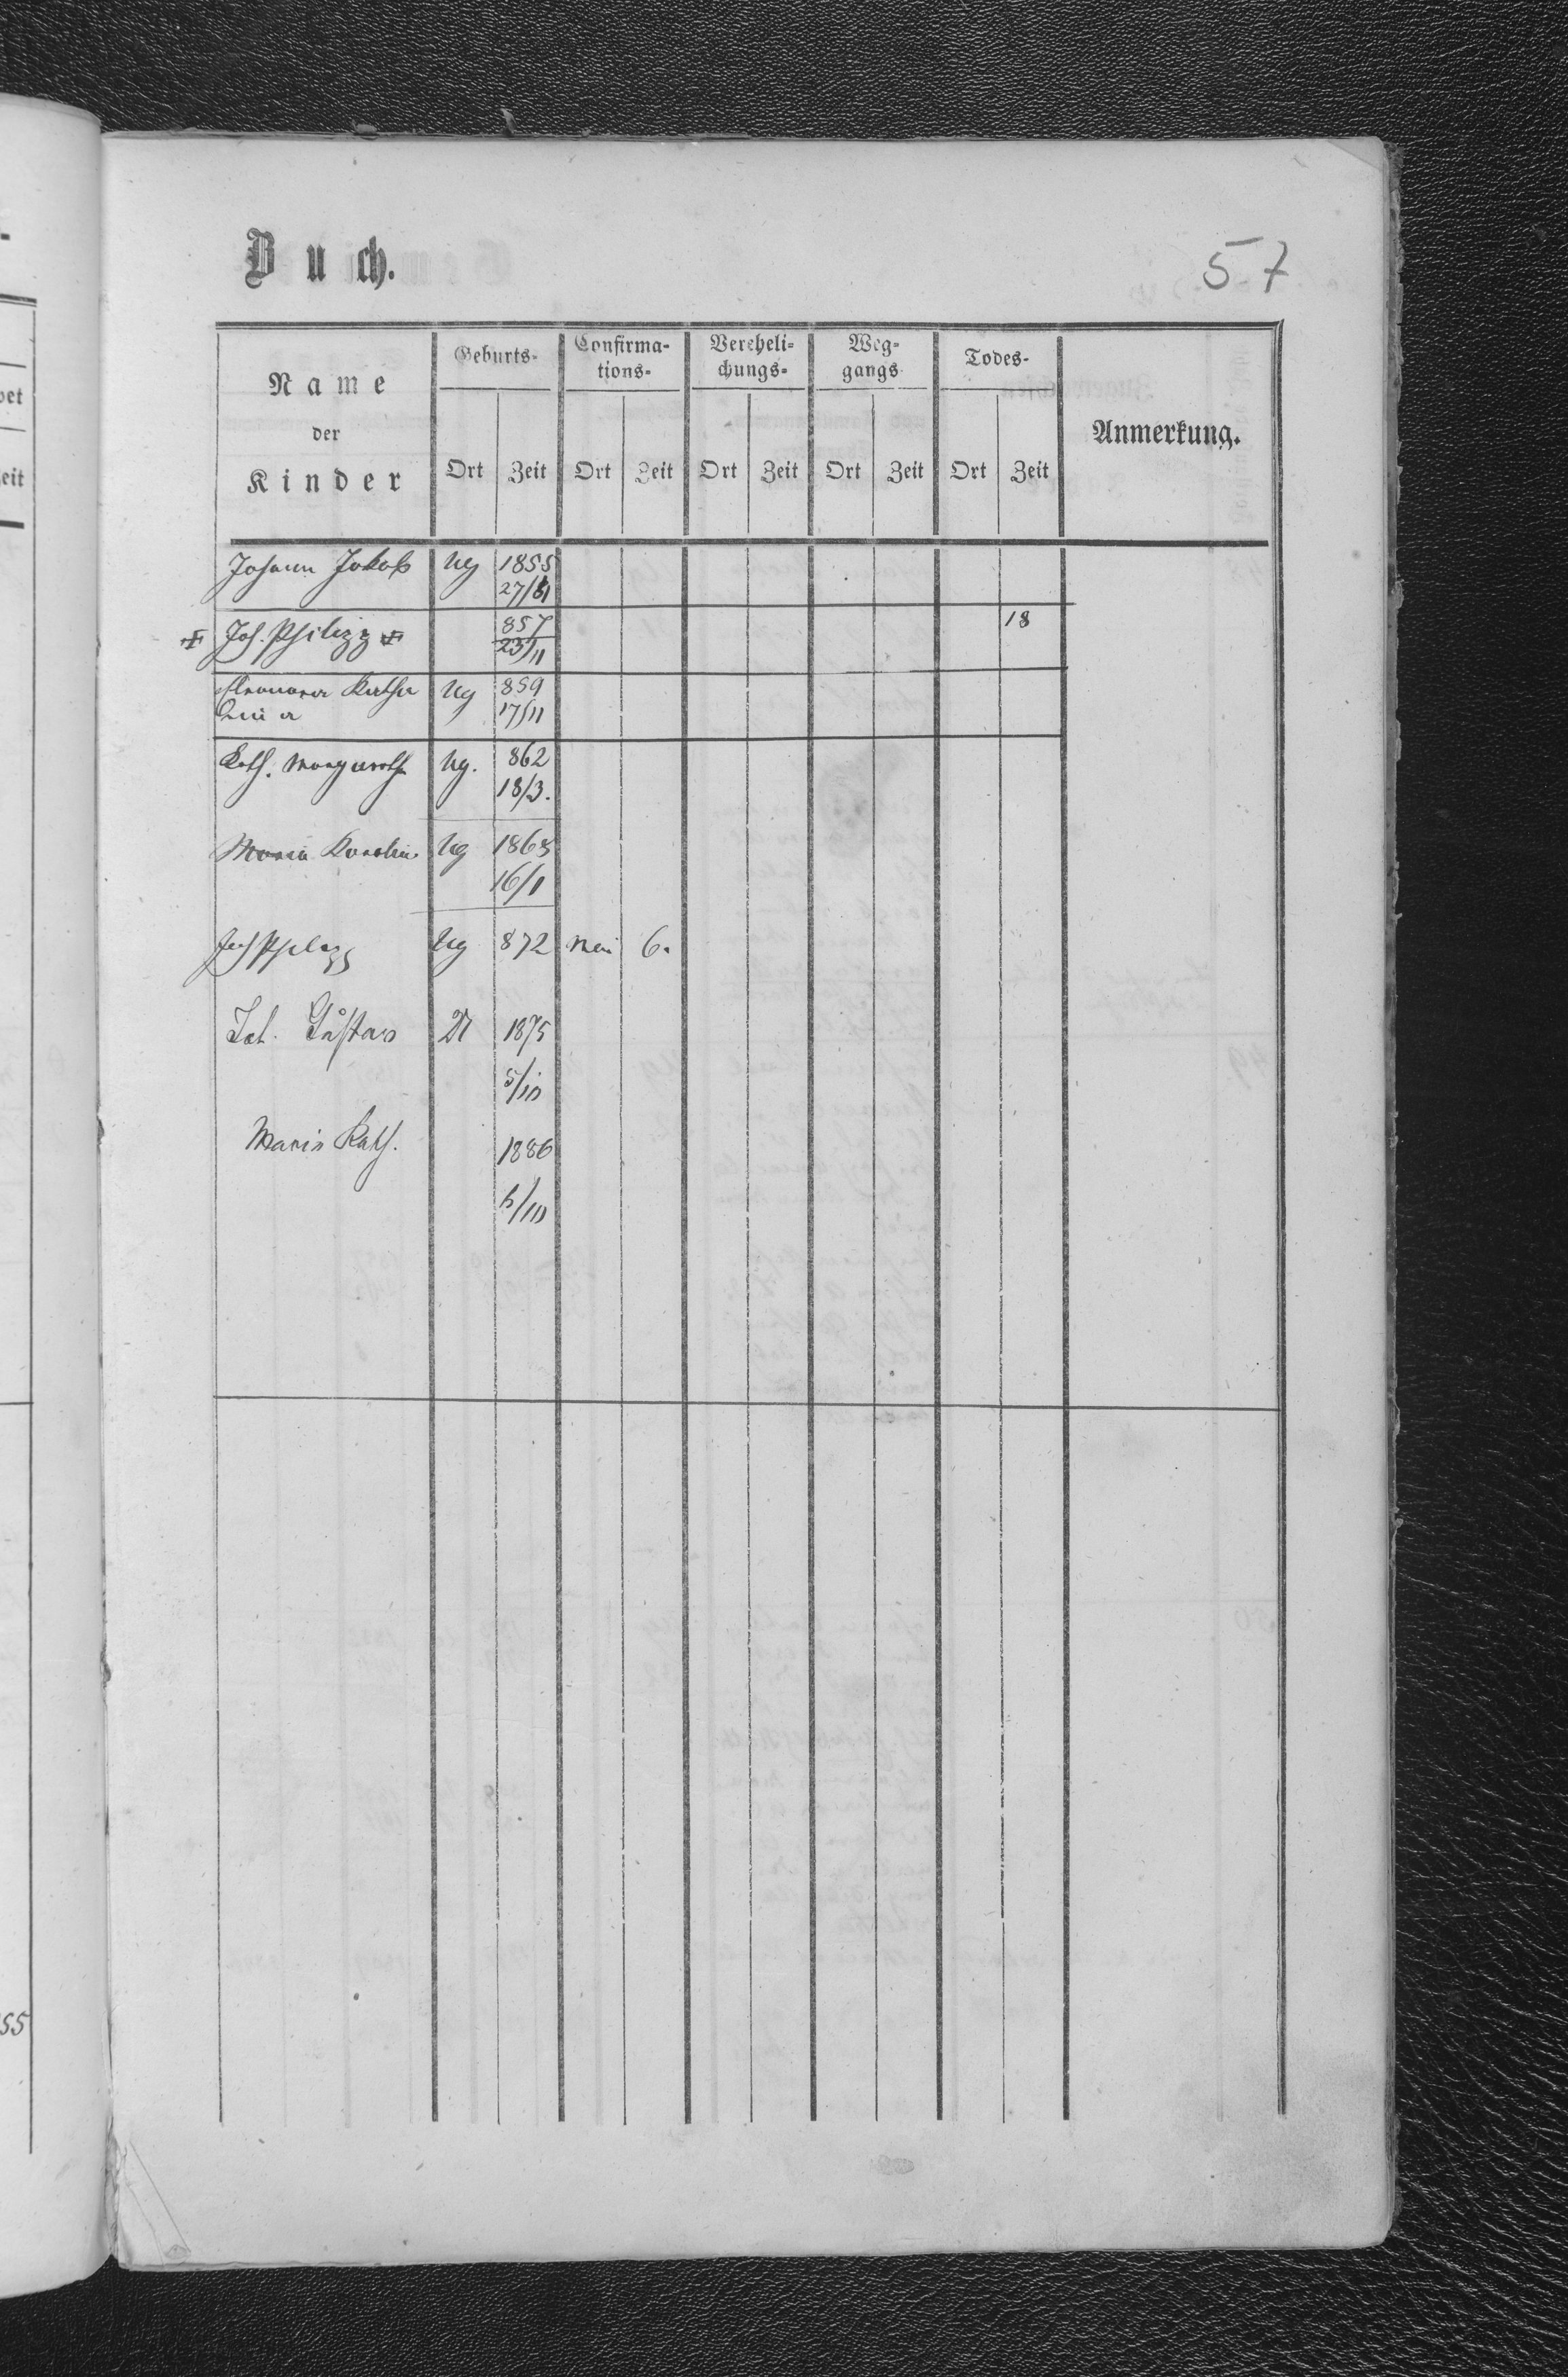 Buch.
57
Name der Kinder
Geburts-
Confirmations-
Verehelichungs-
Weggangs
Todes-
Anmerkung.
Ort Zeit Ort Zeit Ort Zeit Ort Zeit Ort Zeit
Johann Jakob Ug 1855
27/
Joh. Philipp 857 18
23/11
Eleonora Katha Ug 859
rina 17/11
Kath. Margareth Ug. 862
18/3.
Maria Karolin Ug 1865
16/1
Joh Philipp Ug 872 Mai 6.
Joh. Gustav 1875
5/10
Maria Kath. 1886
6/10
55